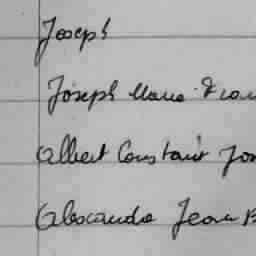 Joseph
Joseph Marie Fran
Albert Constant Jos
Alexandre Jean B